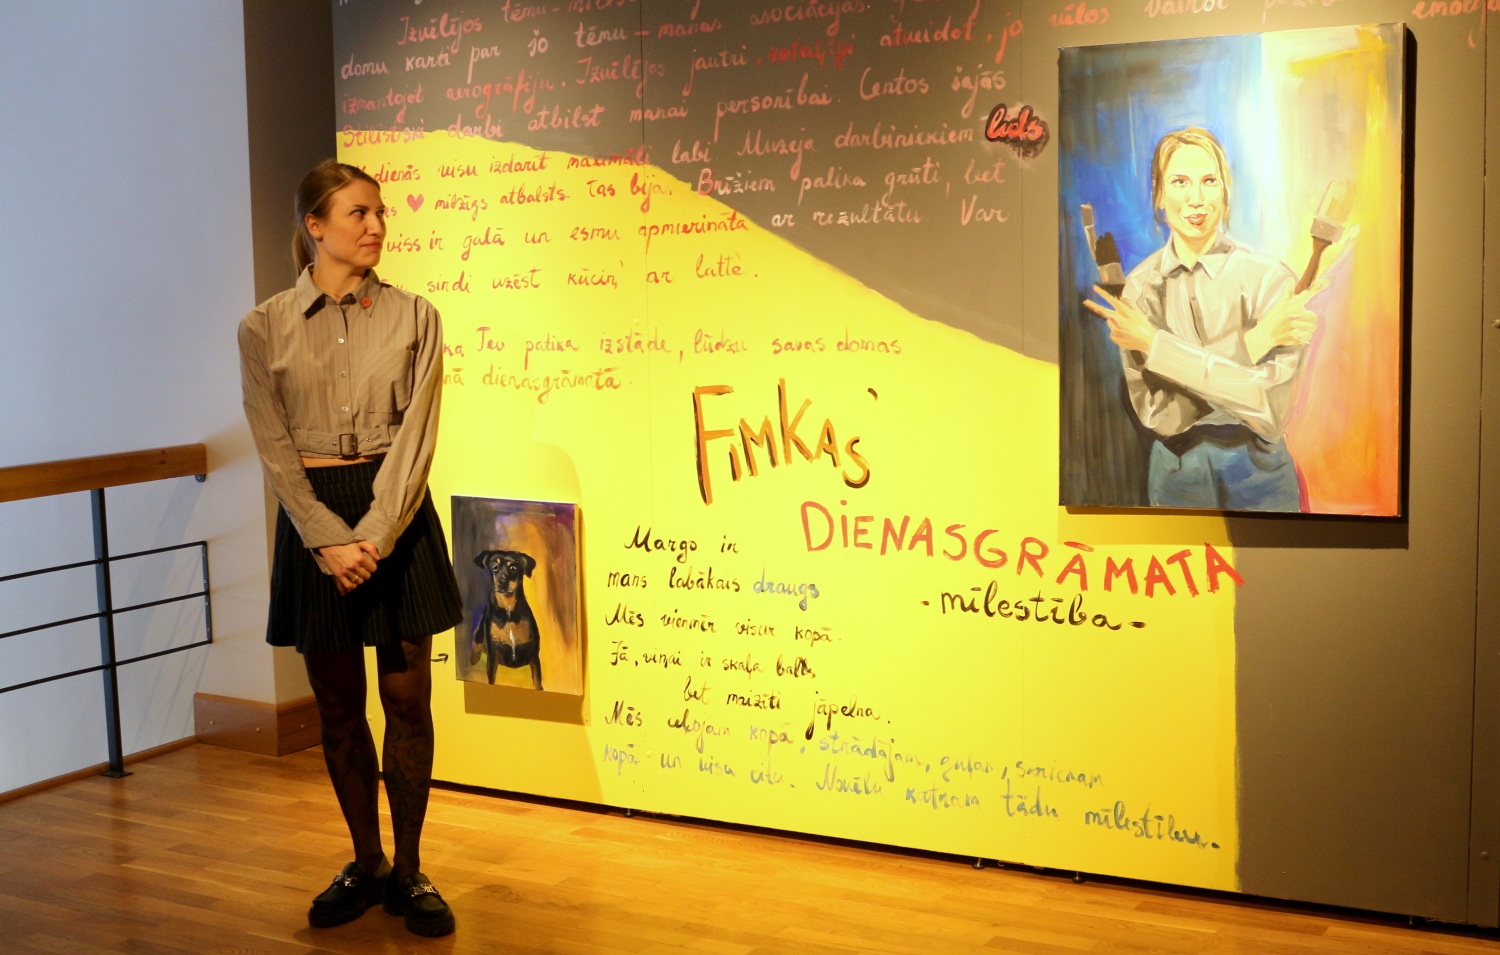 Izvēlējos tēmu - manas asociācijas
domu kārti par šo tēmu - manas atveidot, jo vēlos vairot
izmantojot aerogrāfiju. Izvēlējos jautri
Stilistiski darbi atbilst manai personībai. Centos šajās
dienās visu izdarīt maximāli labi. Muzeja darbiniekiem liels
♥ milzīgs atbalsts. Tas bija. Brīžiem palika grūti, bet
viss ir galā un esmu apmierināta ar rezultātu. Var
sirdi uzēst kūciņ' ar lattē.
Tev patika izstāde, lūdzu savas domas
dienasgrāmatā.
FIMKAS'
DIENASGRĀMATA
- mīlestība -
Margo ir
mans labākais draugs
Mēs vienmēr visur kopā.
Jā, viņai ir skaļa balss
bet maizīti jāpelna.
Mēs ekojam kopā, strādājam, guļam, smejam
kopā un visu citu. Novēlu katram tādu mīlestību.